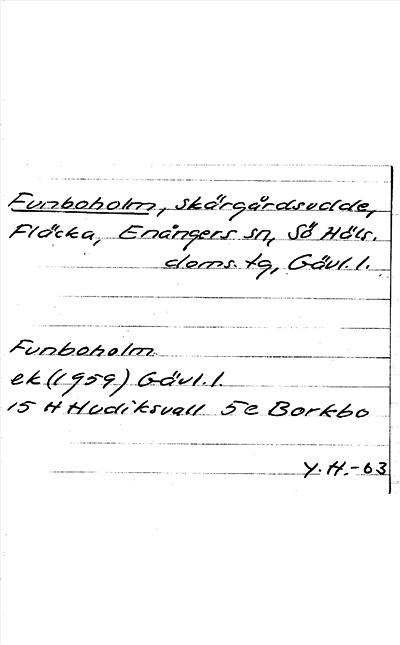 Funboholm, skärgårdsudde,
Fläcka, Enångers sn, Sö Häls.
doms. tg, Gävl. l.
Funboholm
ek (1959) Gävl. l
15 H Hudiksvall 5e Borkbo
Y. H. - 63